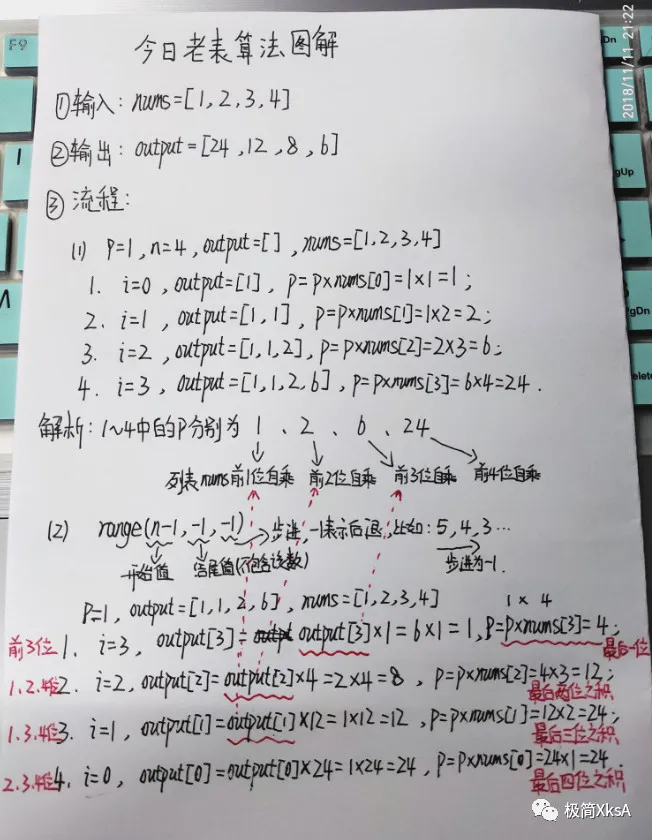 F9
2018/11/11 21:22
今日老表算法图解
①输入: nums=[1,2,3,4]
②输出: output=[24,12,8,6]
③流程:
(1) P=1, n=4, output=[], nums=[1,2,3,4]
1. i=0, output=[1], p=p×nums[0]=1×1=1;
2. i=1, output=[1,1], p=p×nums[1]=1×2=2;
3. i=2, output=[1,1,2], p=p×nums[2]=2×3=6;
4. i=3, output=[1,1,2,6], p=p×nums[3]=6×4=24.
解析: 1~4中的P分别为 1、2、6、24
列表nums前1位自乘 前2位自乘 前3位自乘 前4位自乘
(2) range(n-1, -1, -1) 步进,-1表示后退,比如: 5,4,3…
开始值 结尾值(不包含该数) 步进为-1.
P=1, output=[1,1,2,6], nums=[1,2,3,4] 1 × 4
前3位 1. i=3, output[3]= output[3]×1=6×1=1, P=p×nums[3]=4; 最后一位
1.2.4位 2. i=2, output[2]=output[2]×4=2×4=8, p=p×nums[2]=4×3=12;
最后两位之积
1.3.4位 3. i=1, output[1]=output[1]×12=1×12=12, p=p×nums[1]=12×2=24;
最后三位之积
2.3.4位 4. i=0, output[0]=output[0]×24=1×24=24, p=p×nums[0]=24×1=24.
最后四位之积
极简XksA